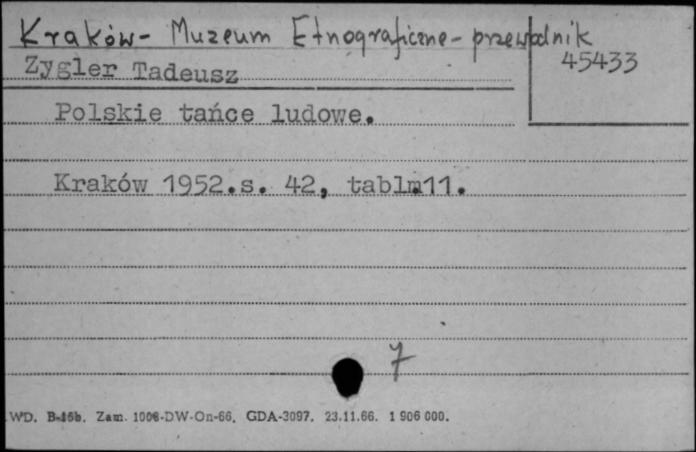 Kraków - Muzeum Etnograficzne - przewodnik
45433
Zygler Tadeusz
Polskie tańce ludowe.
Kraków 1952.s. 42, tabl.11.
7
WD. B-16b. Zam. 1008-DW-On-66. GDA-3097. 23.11.66. 1 906 000.